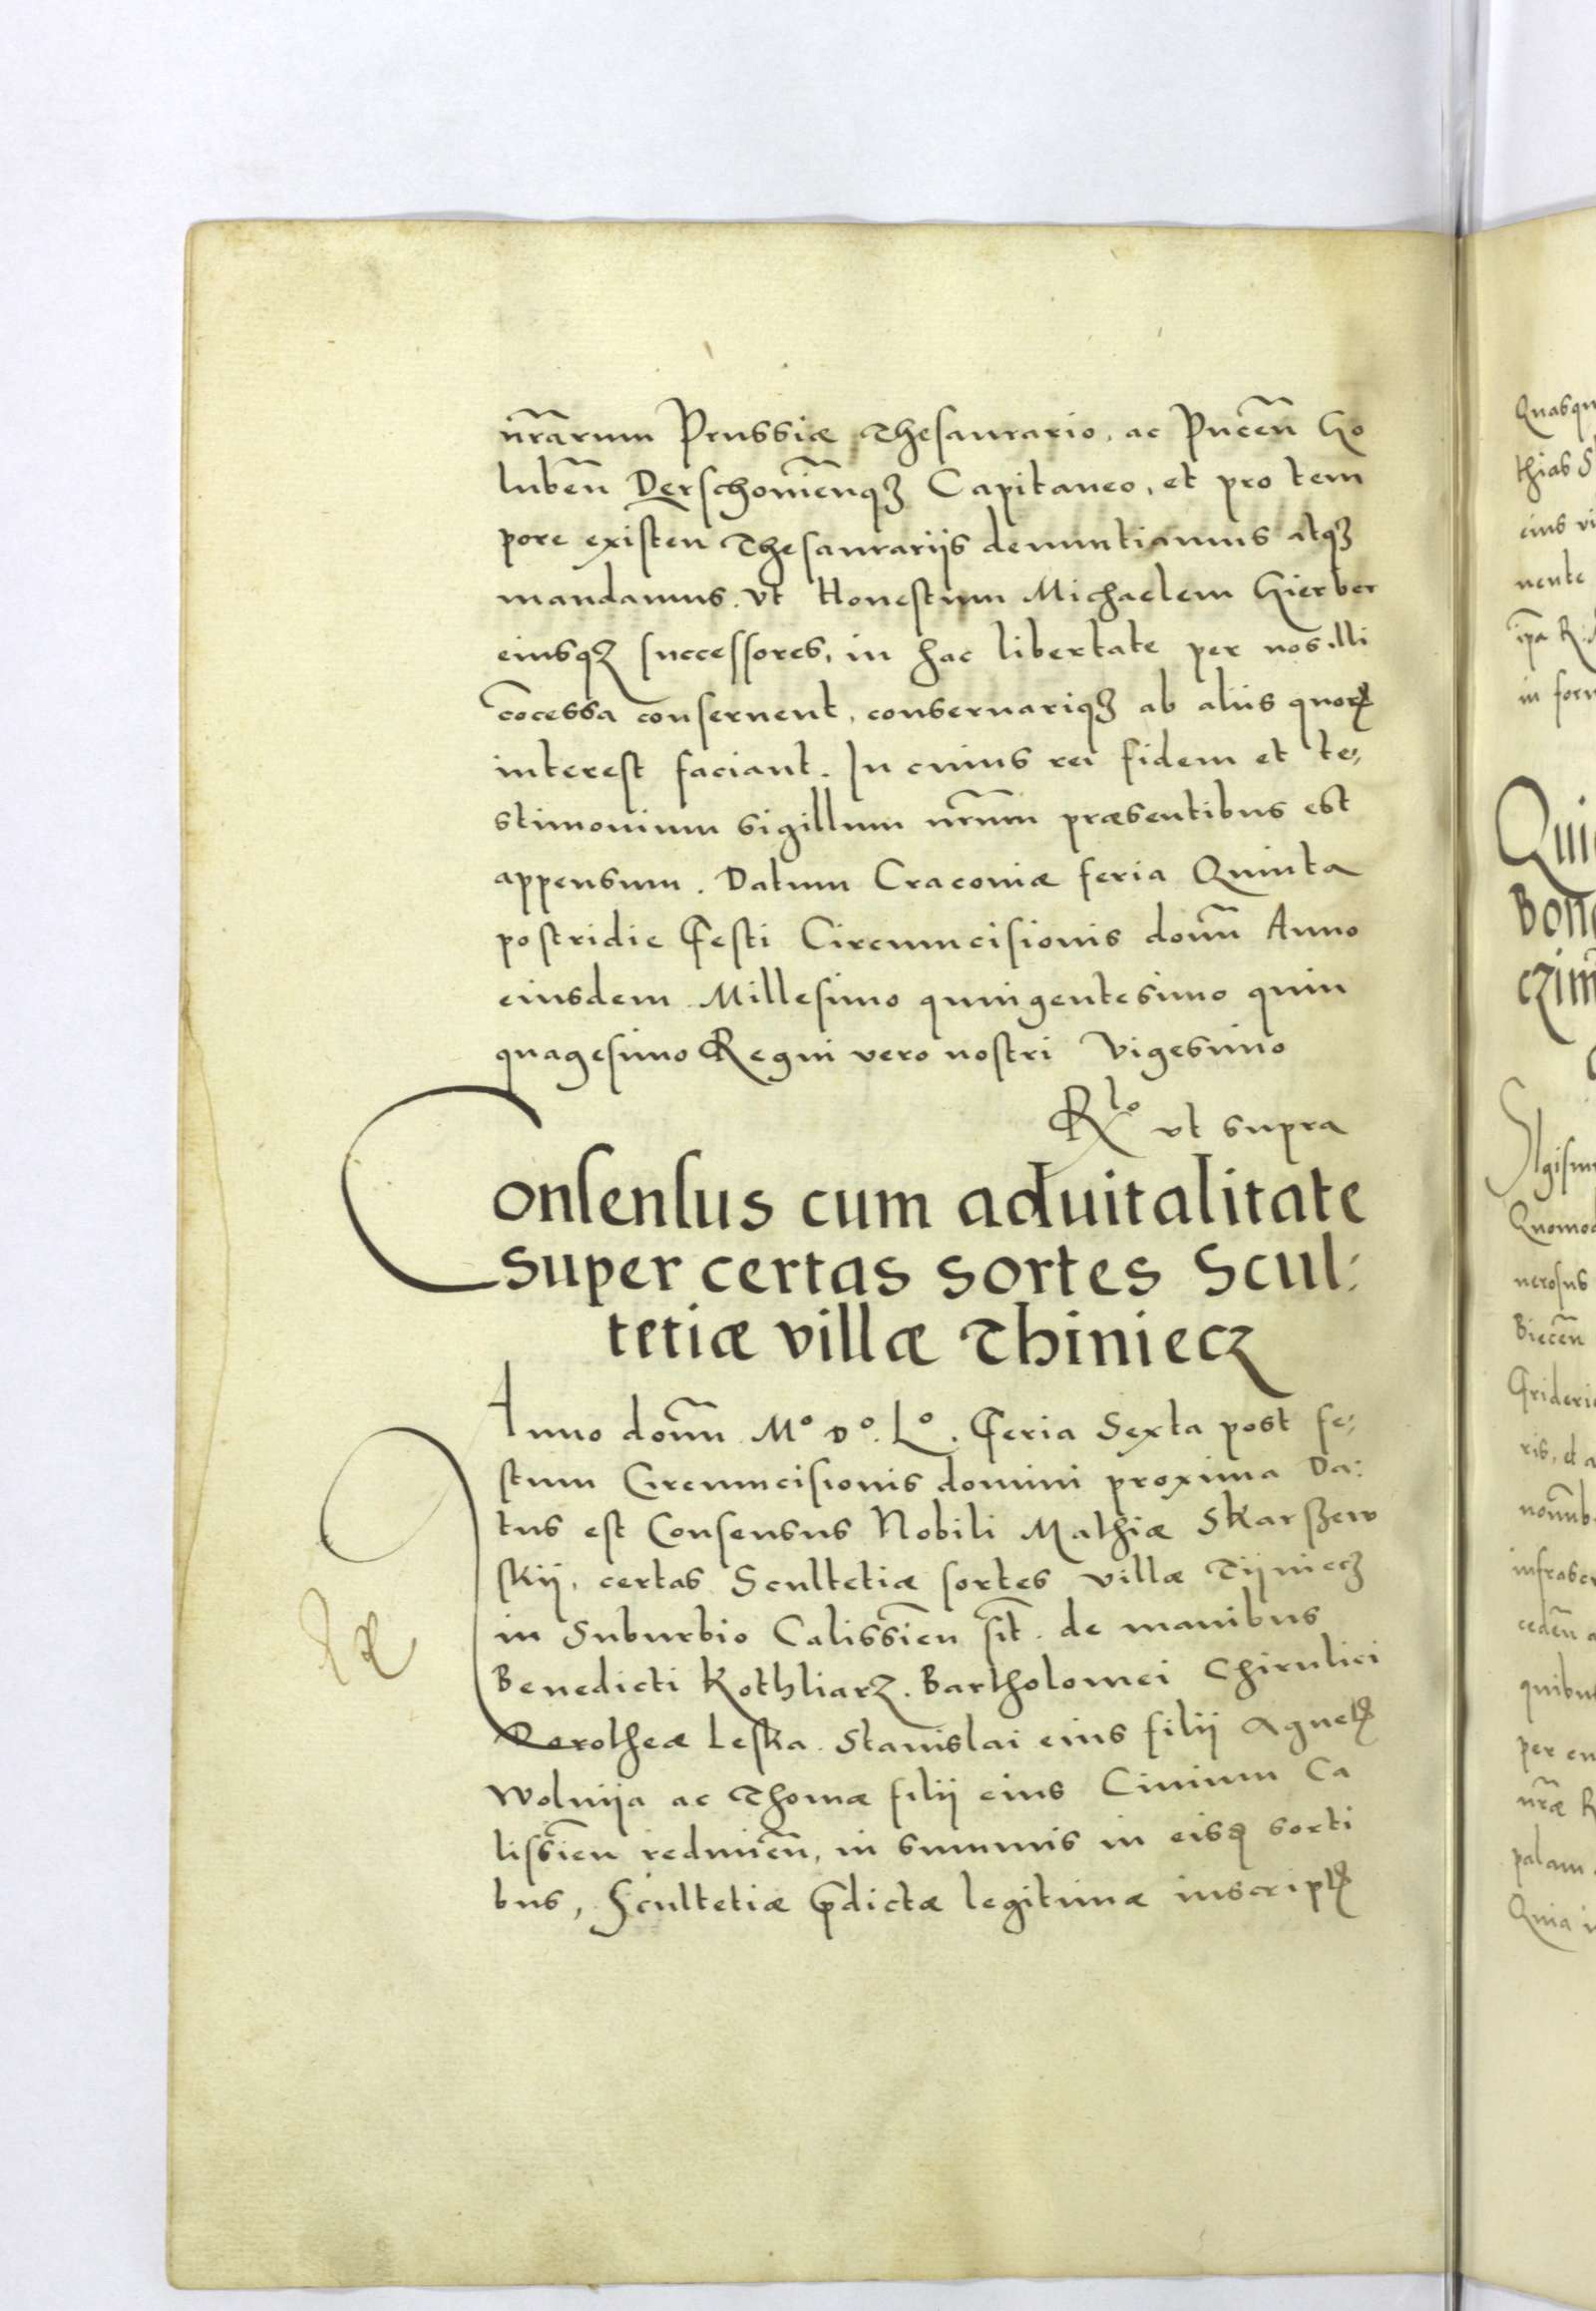 nr̃arum Prussiæ Thesaurario, ac Pucen̄ Go
luben̄ Derschouien̄qʒ Capitaneo, et pro tem
pore existen Thesaurariis denuntiamus atqʒ
mandamus. vt Honestum Michaelem Gierber
eiusqʒ successores, in hac libertate per nos illi
cōcessa conseruent, conseruariqʒ ab aliis quorꝝ
interest faciant. In cuius rei fidem et te,
stimonium sigillum nr̄um præsentibus est
appensum. Datum Cracouiæ feria Quinta
postridie Festi Circumcisionis domn̄ Anno
eiusdem Millesimo quingentesimo quin
quagesimo Regni vero nostri Vigesimo
Rlo vt supra
Consensus cum aduitalitate
super certas sortes Scul:
tetiæ villæ Thiniecz
Anno domn̄ Mº Dº. Lº. Feria Sexta post fe,
stum Circumcisionis domini proxima Da:
tus est Consensus Nobili Mathiæ Skarszew
skij, certas Scultetiæ sortes villæ Tijniecʒ
in Suburbio Calissien̄ sit̄. de manibus
Benedicti Kothliarz. Bartholomei Chirulici
Dorotheæ Leska. Stanislai eius filij Agnetꝭ
Wolnija ac Thomæ filij eius Ciuium Ca
lissien̄ redmien̄, in summis in eisd sorti
bus, Scultetiæ p̄dictæ legitimæ inscriptꝭ
Quasqu
thias S
eius vi
nente
ip̄a R.
in for
Qui
Bon
czim
Sigism
Quomod
nerosus
Biecen̄
Grideri
ris, et a
infrascr
ceden̄ a
quibu
per eu
nr̄æ R
palam
Quia i